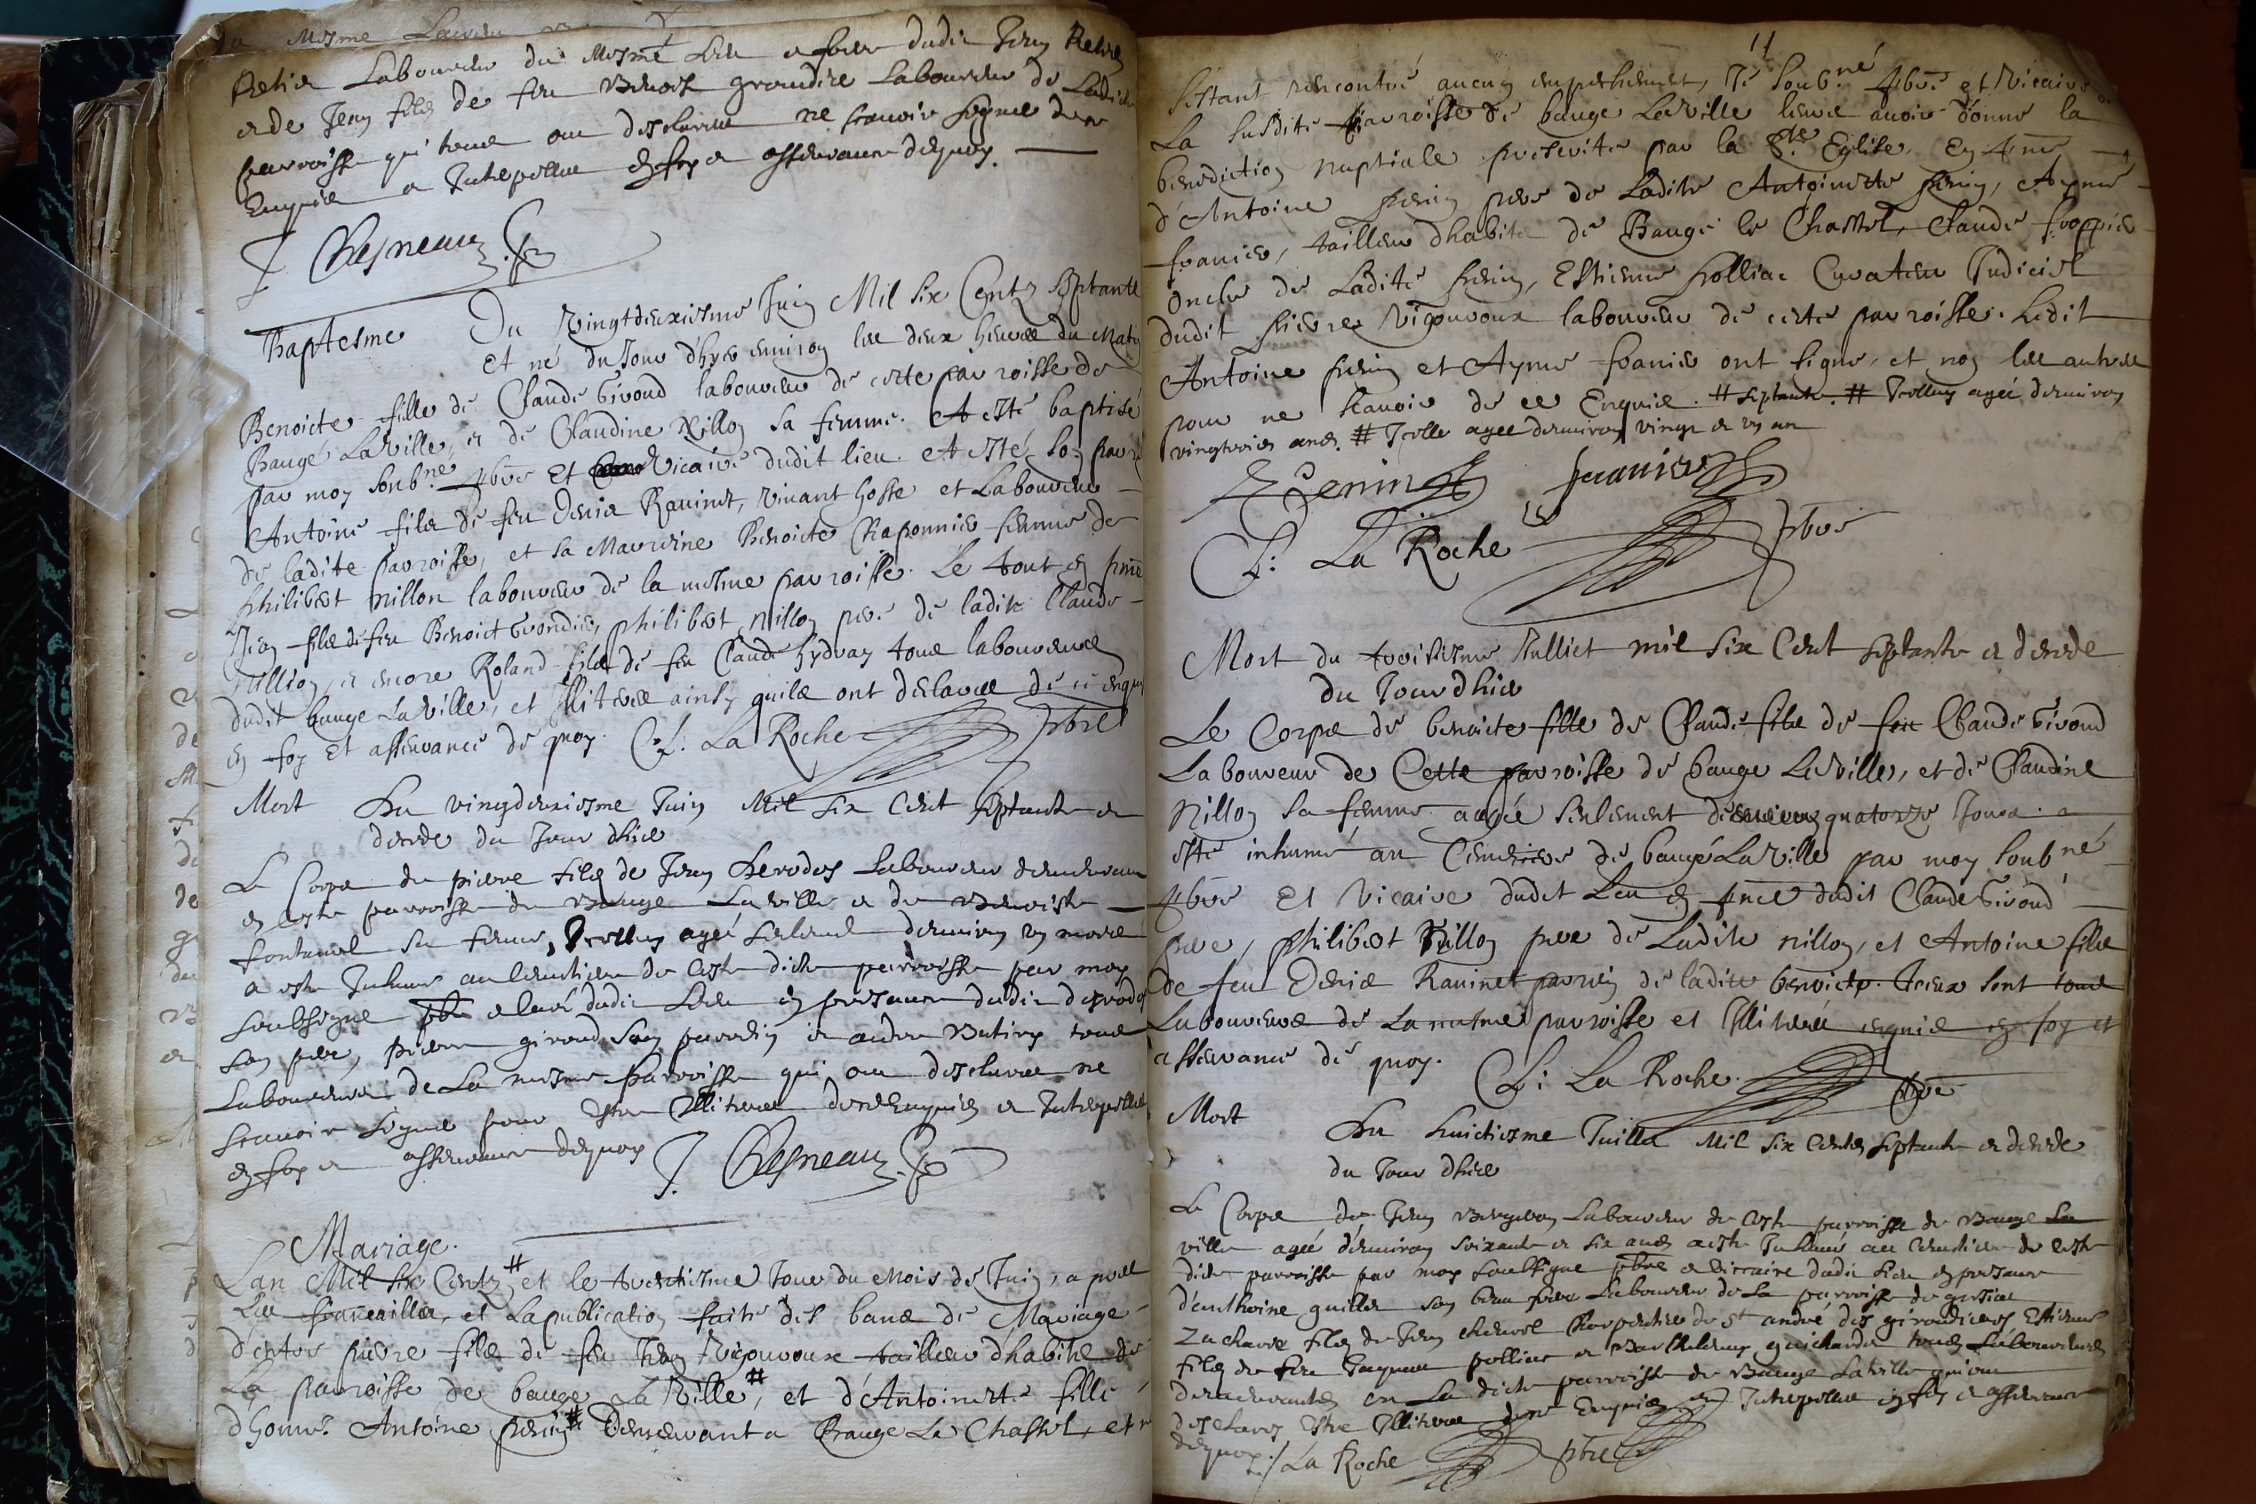 du mesme
Laboureur du Mesme Lieu et dudit Jean
et de Jean filz de feu Benoist grandire Laboureur de Ladicte
parroisse qui tous ont desclaree ne scavoir signer de ce
Enquis et Interpelles En foy et asseurance dequoy.
J. Chesneau
Baptesme Du Vingtdeuxiesme Juin Mil Six Centz Septante
Et né du Jour d'hyer environ les deux heures du Matin
Benoicte fille de Claude Givoud laboureur de cette parroisse de
Baugé La Ville, et de Claudine Nillon sa femme. A esté baptisé
par moy soubné. pbre Et Vicaire dudit lieu. A esté son parrin
Antoine filz de feu Denis Ravinet, vivant hoste et Laboureur
de ladite parroisse, et sa Marreine Benoicte Chaponnier femme de
philibert nillon laboureur de la mesme parroisse. Le tout en pnce
Jean filz de feu Benoict Grondin, philibert Nillon pere de ladite Claude
nillion, et encore Roland filz de feu Claude tous laboureurs
dudit bauge La Ville, et Illiterez ainsy quilz ont desclaree de ce enquis
En foy Et asseurance de quoy. C. F. La Roche pbre
Mort Du vingtdeuxiesme Juin Mil Six Cent Septante et
decede du Jour dhier
Le Corps de pierre filz de Jean Laboureur demeurant
en ceste parroisse de Bauge La ville et de Benoiste
sa femme, Icelluy agé seulement denviron un mois
a esté Inhumé au Cemetiere de Ceste dicte parroisse par moy
soubsigne pbre et Curé dudit Lieu en presence dudit
son pere, pierre giroud son parredin et andre tous
Laboureurs de La mesme parroisse qui ont desclaree ne
scavoir Signer pour Estre Illiteree de ce Enquis et Interpelles
En foy et asseurance dequoy J. Chesneau
Mariage.
Lan Mil Six Centz # et le trentiesme Jour du Mois de Juin, apres
Les fiancailles, et La publication faite des bans de Mariage
D'entre pierre filz de feu Jean Vigouroux tailleur d'habitz de
La parroisse de bauge La Ville #, et d'Antoinette fille
d'honne. Antoine perin # Demeurant a Bauge Le Chastel, et n
11
S'estant rencontré aucun empeschement, Je soubné pbre et Vicaire de
La susdite parroisse de bauge La Ville leurs avoir donne la
benediction nuptiale prescrite par la Ste Eglise, En pnce
d'Antoine perin pere de Ladite Antoinette perin, Ayme
franier, tailleur d'habitz de Bauge le Chastel, Claude froppier
oncle de Ladite perin, Estienne Curateur Judiciel
dudit pierre Vigouroux laboureur de cette parroisse. Ledit
Antoine perin et Ayme franier ont signe, et non les autres
pour ne scavoir de ce Enquis. # septante. # Icelluy agee denviron
vingtrois ans. # Icelle agee denviron vingt et un an
Perin franier
C. F: La Roche pbre
Mort du troisiesme Julliet mil Six Cent septante et decede
du Jour dhier
Le Corps de benoicte fille de Claude filz de feu Claude Givoud
Laboureur de Cette parroisse de bauge La Ville, et de Claudine
Nillon sa femme agée seulement denviron quatorze Jours. a
esté inhumé au Cemetiere de baugé La Ville par moy soubné
pbre Et Vicaire dudit Lieu en pnce dudit Claude Givoud
pere, philibert Nillon pere de Ladite nillon, et Antoine filz
de feu Denis Ravinet parrin de ladite benoicte. Iceux sont tous
Laboureurs de La mesme parroisse et Illiterez enquis en foy et
asseurance de quoy. C. F: La Roche. pbre
Mort Du huictiesme Juillet Mil Six Centz septante et decede
du Jour dhier
Le Corps de Jean Laboureur de Ceste parroisse de Bauge La
ville agé denviron soixante et six ans a esté Inhumé au Cemetiere de ceste
dicte parroisse par moy soubsigne pbre et Viccaire dudit Lieu en presence
d'anthoine son beau frere Laboureur de La parroisse de
Zacharie filz de Jean de St andré Estienne
filz de feu Jacques et tous Laboureurs
demeurantz en La dicte parroisse de Bauge La ville qui ont
desclarez Estre Illiteree de ce Enquis et Interpelles en foy et asseurance
dequoy. La Roche pbre